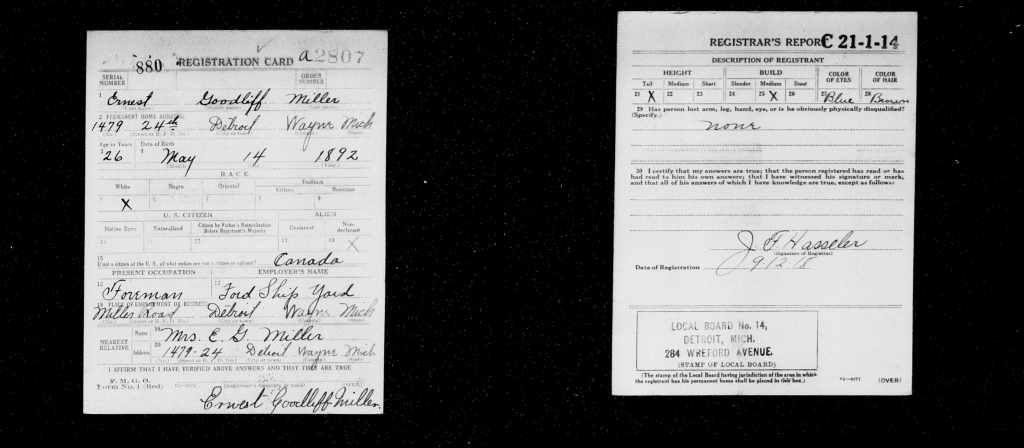 880 REGISTRATION CARD a2807
SERIAL NUMBER
ORDER NUMBER
1 Ernest Goodliff Miller
2 PERMANENT HOME ADDRESS:
1479 24th Detroit Wayne Mich
Age in Years Date of Birth
26 May 14 1892
RACE
White Negro Oriental Indian
Citizen Noncitizen
X
U. S. CITIZEN ALIEN
Native Born Naturalized Citizen by Father's Naturalization Before Registrant's Majority Declarant Non-declarant
X
15
If not a citizen of the U. S., of what nation are you a citizen or subject? Canada
PRESENT OCCUPATION EMPLOYER'S NAME
Foreman Ford Ship Yard
18 PLACE OF EMPLOYMENT OR BUSINESS
Miller Road Detroit Wayne Mich
NEAREST RELATIVE
Name Mrs. E. G. Miller
Address 1479-24 Detroit Wayne Mich
I AFFIRM THAT I HAVE VERIFIED ABOVE ANSWERS AND THAT THEY ARE TRUE
P. M. G. O.
Form No. 1 (Red)
Ernest Goodliff Miller.
REGISTRAR'S REPORT C 21-1-14
DESCRIPTION OF REGISTRANT
HEIGHT BUILD COLOR OF EYES COLOR OF HAIR
Tall Medium Short Slender Medium Stout
21 X 22 23 24 25 X 26 27 Blue 28 Brown
29 Has person lost arm, leg, hand, eye, or is he obviously physically disqualified?
(Specify.)
none
30 I certify that my answers are true; that the person registered has read or has
had read to him his own answers; that I have witnessed his signature or mark,
and that all of his answers of which I have knowledge are true, except as follows:
J F Hasseler
(Signature of Registrar)
Date of Registration 9/12/18
LOCAL BOARD No. 14,
DETROIT, MICH.
284 WREFORD AVENUE.
(STAMP OF LOCAL BOARD)
(The stamp of the Local Board having jurisdiction of the area in which
the registrant has his permanent home shall be placed in this box.)
(OVER)